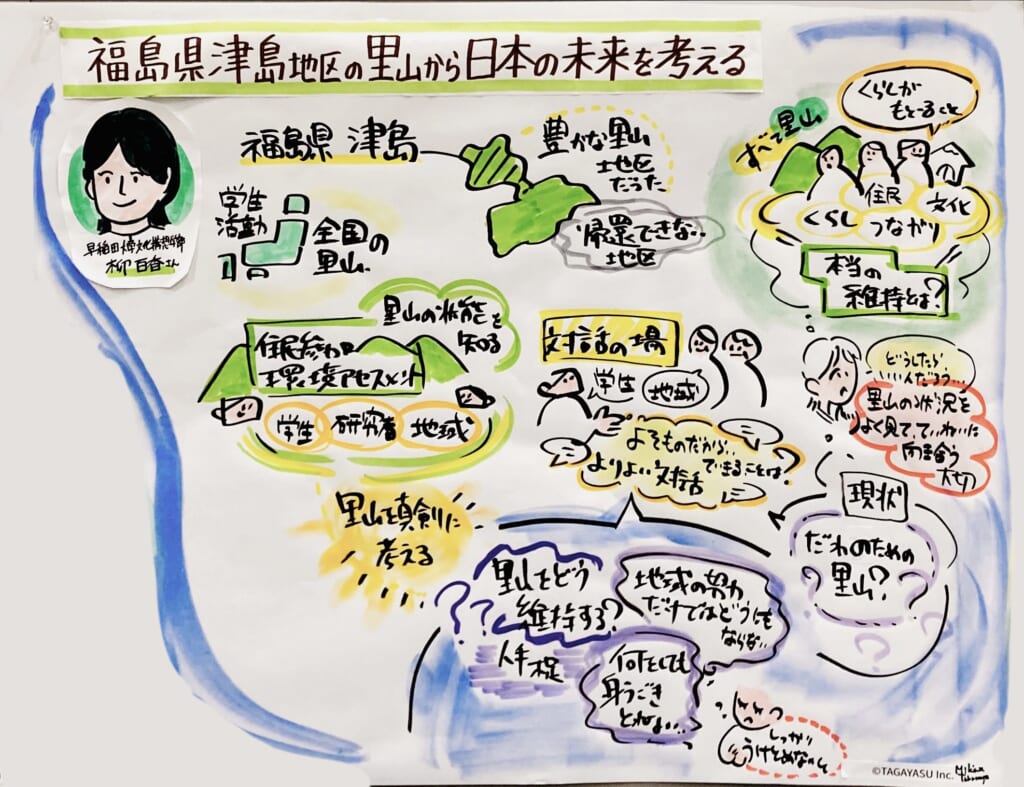 福島県津島地区の里山から日本の未来を考える
柳百香さん
福島県 津島
豊かな里山
地区
だった
帰還できない‥
地区
学生
活動
全国の
里山
すべて里山
くらしが
もどること
住民
文化
くらし
つながり
本当の
維持とは?
里山の状態を
知る
住民参加
環境アセスメント
学生
研究者
地域
対話の場
学生
地域
よそものだから‥
できることは?
よりよい対話
どうしたら
いいんだろう‥
里山の状況を
よく見て、ていねいに
向き合う
大切
里山を真剣に
考える
現状
だれのための
里山?
里山をどう
維持する?
地域の努力
だけではどうにも
ならない‥
人手不足
何をしても
身うごき
とれない‥
しっかり
うけとめないと
©TAGAYASU Inc.